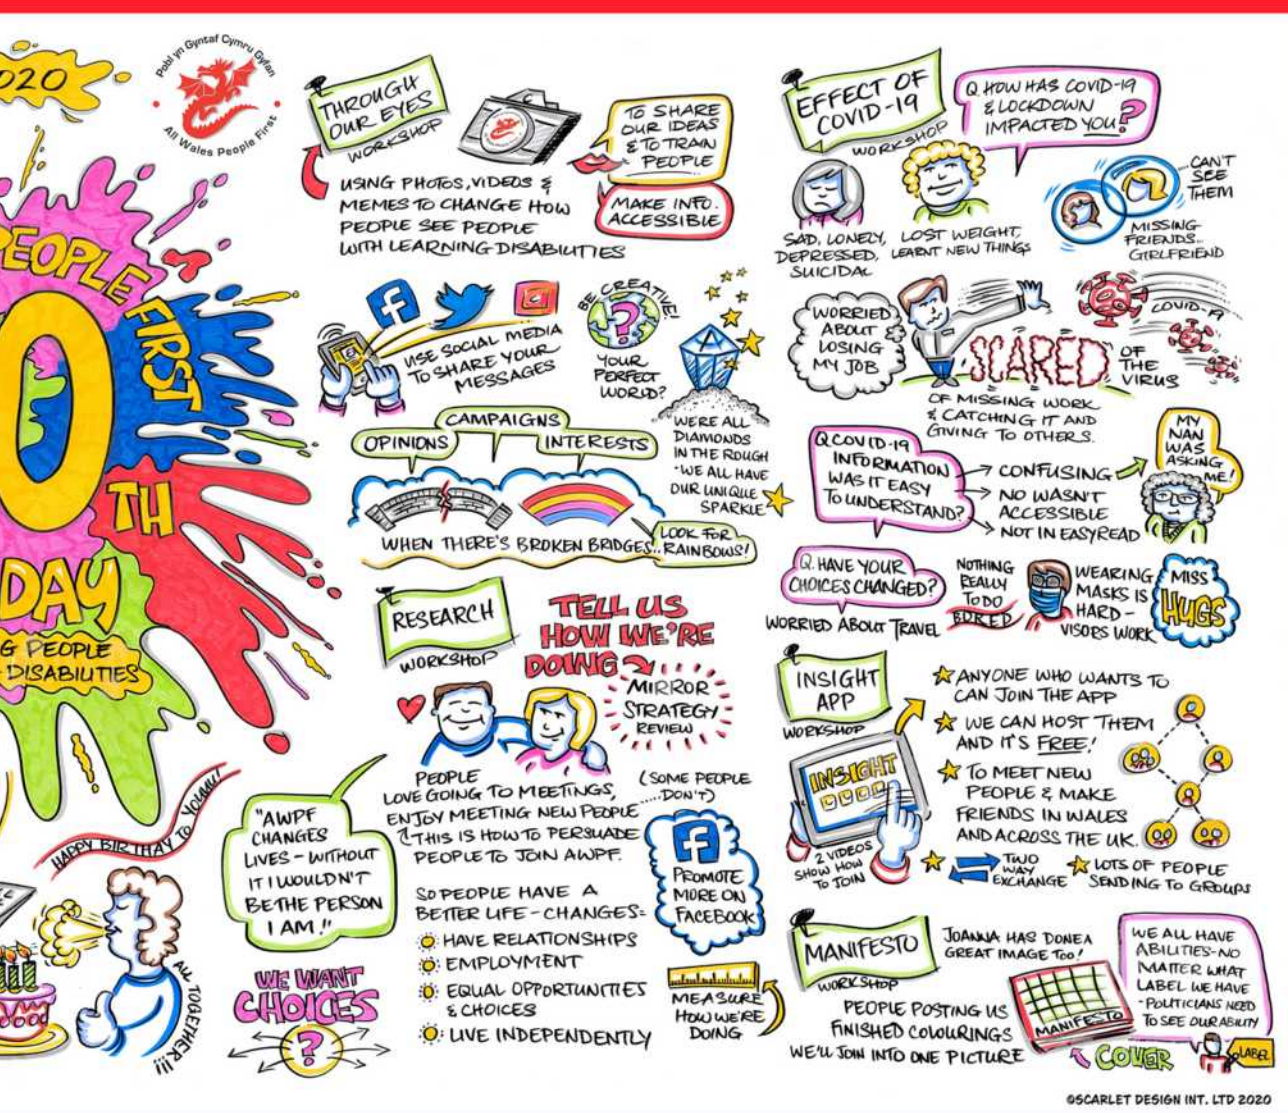 020
Pobl yn Gyntaf Cymru Gyfan
All Wales People First
PEOPLE
FIRST
0
TH
DAY
G PEOPLE
DISABILITIES
HAPPY BIRTHDAY TO YOUUU!
ALL TOGETHER!!!!
"AWPF
CHANGES
LIVES - WITHOUT
IT I WOULDN'T
BE THE PERSON
I AM!"
WE WANT
CHOICES
?
THROUGH
OUR EYES
WORKSHOP
TO SHARE
OUR IDEAS
& TO TRAIN
PEOPLE
MAKE INFO.
ACCESSIBLE
USING PHOTOS, VIDEOS &
MEMES TO CHANGE HOW
PEOPLE SEE PEOPLE
WITH LEARNING DISABILITIES
USE SOCIAL MEDIA
TO SHARE YOUR
MESSAGES
BE CREATIVE!
?
YOUR
PERFECT
WORLD?
WE'RE ALL
DIAMONDS
IN THE ROUGH
- WE ALL HAVE
OUR UNIQUE
SPARKLE
CAMPAIGNS
OPINIONS
INTERESTS
WHEN THERE'S BROKEN BRIDGES..
LOOK FOR
RAINBOWS!
RESEARCH
WORKSHOP
TELL US
HOW WE'RE
DOING
MIRROR
STRATEGY
REVIEW
PEOPLE
LOVE GOING TO MEETINGS,
ENJOY MEETING NEW PEOPLE
(SOME PEOPLE
.....DON'T)
THIS IS HOW TO PERSUADE
PEOPLE TO JOIN AWPF.
PROMOTE
MORE ON
FACEBOOK
SO PEOPLE HAVE A
BETTER LIFE - CHANGES=
HAVE RELATIONSHIPS
EMPLOYMENT
EQUAL OPPORTUNITIES
& CHOICES
LIVE INDEPENDENTLY
MEASURE
HOW WE'RE
DOING
EFFECT OF
COVID-19
WORKSHOP
Q. HOW HAS COVID-19
& LOCKDOWN
IMPACTED YOU?
SAD, LONELY,
DEPRESSED,
SUICIDAL
LOST WEIGHT,
LEARNT NEW THINGS
CAN'T
SEE
THEM
MISSING
FRIENDS...
GIRLFRIEND
WORRIED
ABOUT
LOSING
MY JOB
COVID-19
SCARED
OF
THE
VIRUS
OF MISSING WORK
& CATCHING IT AND
GIVING TO OTHERS.
Q COVID-19
INFORMATION
WAS IT EASY
TO UNDERSTAND?
CONFUSING
NO WASN'T
ACCESSIBLE
NOT IN EASYREAD
MY
NAN
WAS
ASKING
ME!
Q. HAVE YOUR
CHOICES CHANGED?
WORRIED ABOUT TRAVEL
NOTHING
REALLY
TO DO
BORED
WEARING
MASKS IS
HARD -
VISORS WORK
MISS
HUGS
INSIGHT
APP
WORKSHOP
INSIGHT
2 VIDEOS
SHOW HOW
TO JOIN
ANYONE WHO WANTS TO
CAN JOIN THE APP
WE CAN HOST THEM
AND IT'S FREE!
TO MEET NEW
PEOPLE & MAKE
FRIENDS IN WALES
AND ACROSS THE UK.
TWO
WAY
EXCHANGE
LOTS OF PEOPLE
SENDING TO GROUPS
MANIFESTO
WORKSHOP
JOANNA HAS DONE A
GREAT IMAGE TOO!
PEOPLE POSTING US
FINISHED COLOURINGS
WE'LL JOIN INTO ONE PICTURE
MANIFESTO
COVER
WE ALL HAVE
ABILITIES - NO
MATTER WHAT
LABEL WE HAVE
- POLITICIANS NEED
TO SEE OUR ABILITY
LABEL
©SCARLET DESIGN INT. LTD 2020